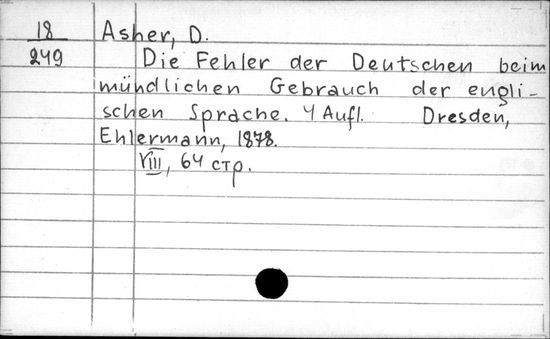 18 Asher, D.
249 Die Fehler der Deutschen beim
mündlichen Gebrauch der engli-
schen Sprache. 4 Aufl. Dresden,
Ehlermann, 1878.
VIII, 64 стр.